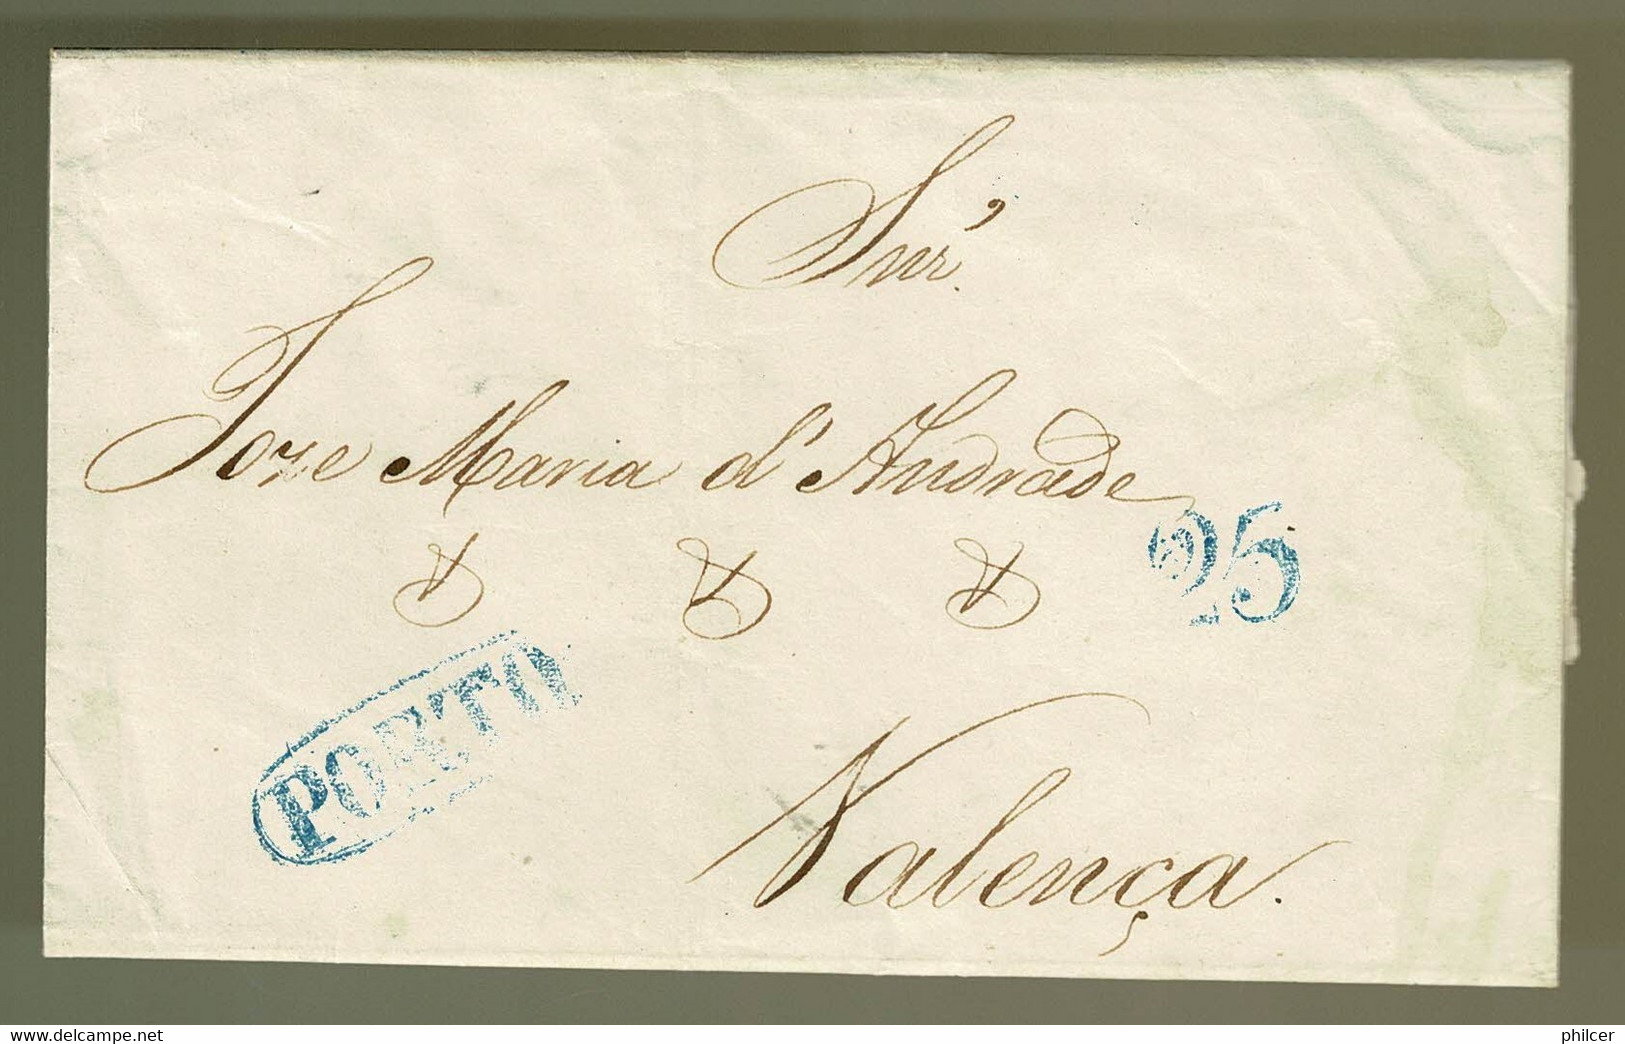 Snr.
Joze Maria d'Andrade
25
PORTO
Valença.
www.delcampe.net
philcer